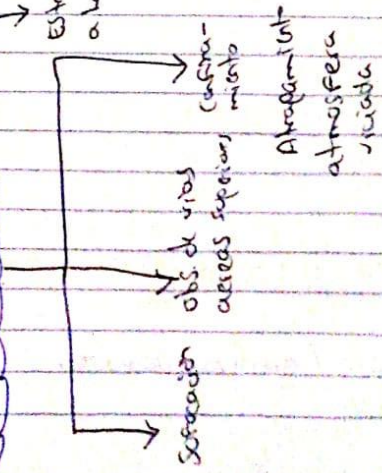 Sofocación
obs. de vias
aereas superiores
Confina-
miento
Atragamint-
atmosfera
viciada